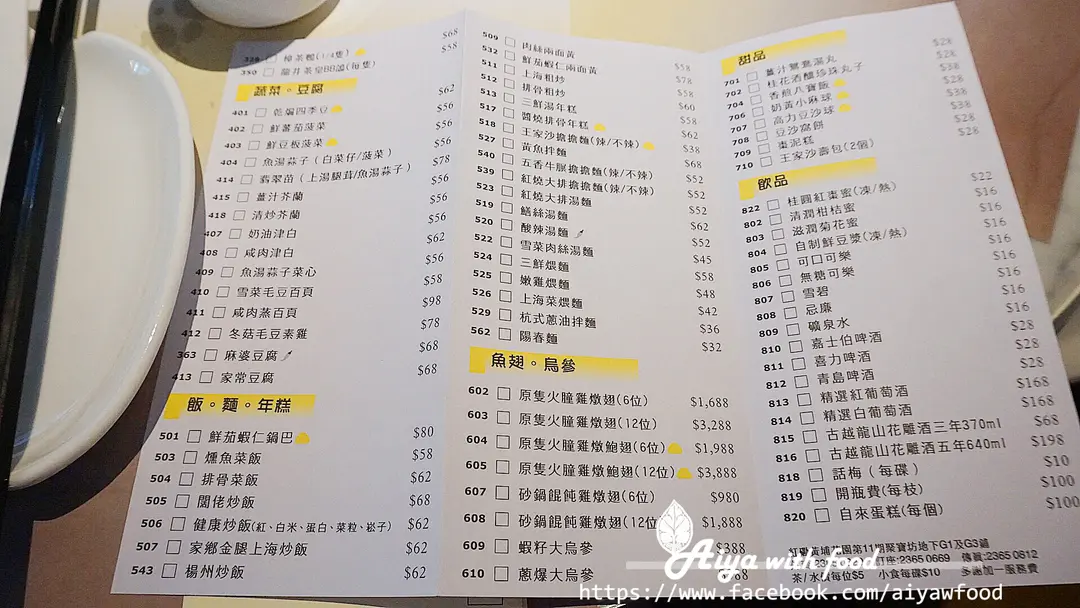 329 樟茶鴨(1/4隻) $68
350 龍井茶皇BB鴿(每隻) $58
蔬菜。豆腐
401 乾煸四季豆 $62
402 鮮蕃茄菠菜 $56
403 鮮豆板菠菜 $56
404 魚湯蒜子(白菜仔/菠菜) $56
414 翡翠苗(上湯腿茸/魚湯蒜子) $78
415 薑汁芥蘭 $56
418 清炒芥蘭 $56
407 奶油津白 $56
408 咸肉津白 $62
409 魚湯蒜子菜心 $56
410 雪菜毛豆百頁 $58
411 咸肉蒸百頁 $98
412 冬菇毛豆素雞 $78
363 麻婆豆腐 $68
413 家常豆腐 $68
飯。麵。年糕
501 鮮茄蝦仁鍋巴 $80
503 燻魚菜飯 $58
504 排骨菜飯 $62
505 闊佬炒飯 $68
506 健康炒飯(紅、白米、蛋白、菜粒、崧子) $62
507 家鄉金腿上海炒飯 $62
543 楊州炒飯 $62
509 肉絲兩面黃 $58
532 鮮茄蝦仁兩面黃 $78
511 上海粗炒 $58
512 排骨粗炒 $60
513 三鮮湯年糕 $58
517 醬燒排骨年糕 $62
518 王家沙擔擔麵(辣/不辣) $38
527 黃魚拌麵 $68
540 五香牛腒擔擔麵(辣/不辣) $52
539 紅燒大排擔擔麵(辣/不辣) $52
523 紅燒大排湯麵 $52
519 鱔絲湯麵 $62
520 酸辣湯麵 $52
522 雪菜肉絲湯麵 $45
524 三鮮煨麵 $58
525 嫩雞煨麵 $48
526 上海菜煨麵 $42
529 杭式蔥油拌麵 $36
562 陽春麵 $32
魚翅。烏參
602 原隻火朣雞燉翅(6位) $1,688
603 原隻火朣雞燉翅(12位) $3,288
604 原隻火朣雞燉鮑翅(6位) $1,988
605 原隻火朣雞燉鮑翅(12位) $3,888
607 砂鍋餛飩雞燉翅(6位) $980
608 砂鍋餛飩雞燉翅(12位 $1,888
609 蝦籽大烏參 $388
610 蔥爆大烏參
甜品
701 薑汁鴛鴦湯丸 $28
702 桂花酒釀珍珠丸子 $28
704 香煎八寶飯 $38
706 奶黃小麻球 $28
707 高力豆沙球 $38
708 豆沙窩餅 $38
709 棗泥糕 $28
710 王家沙壽包(2個) $28
飲品
822 桂圓紅棗蜜(凍/熱) $22
802 清潤柑桔蜜 $16
803 滋潤菊花蜜 $16
804 自制鮮豆漿(凍/熱) $16
805 可口可樂 $16
806 無糖可樂 $16
807 雪碧 $16
808 忌廉 $16
809 礦泉水 $16
810 嘉士伯啤酒 $28
811 喜力啤酒 $28
812 青島啤酒 $28
813 精選紅葡萄酒 $168
814 精選白葡萄酒 $168
815 古越龍山花雕酒三年370ml $68
816 古越龍山花雕酒五年640ml $198
818 話梅(每碟) $10
819 開瓶費(每枝) $100
820 自來蛋糕(每個) $100
紅磡黃埔花園第11期聚寶坊地下G1及G3鋪
訂座:2365 0669 傳真:2365 0812
茶/水每位$5 小食每碟$10 多謝加一服務費
Aiya with food
https://www.facebook.com/aiyawfood